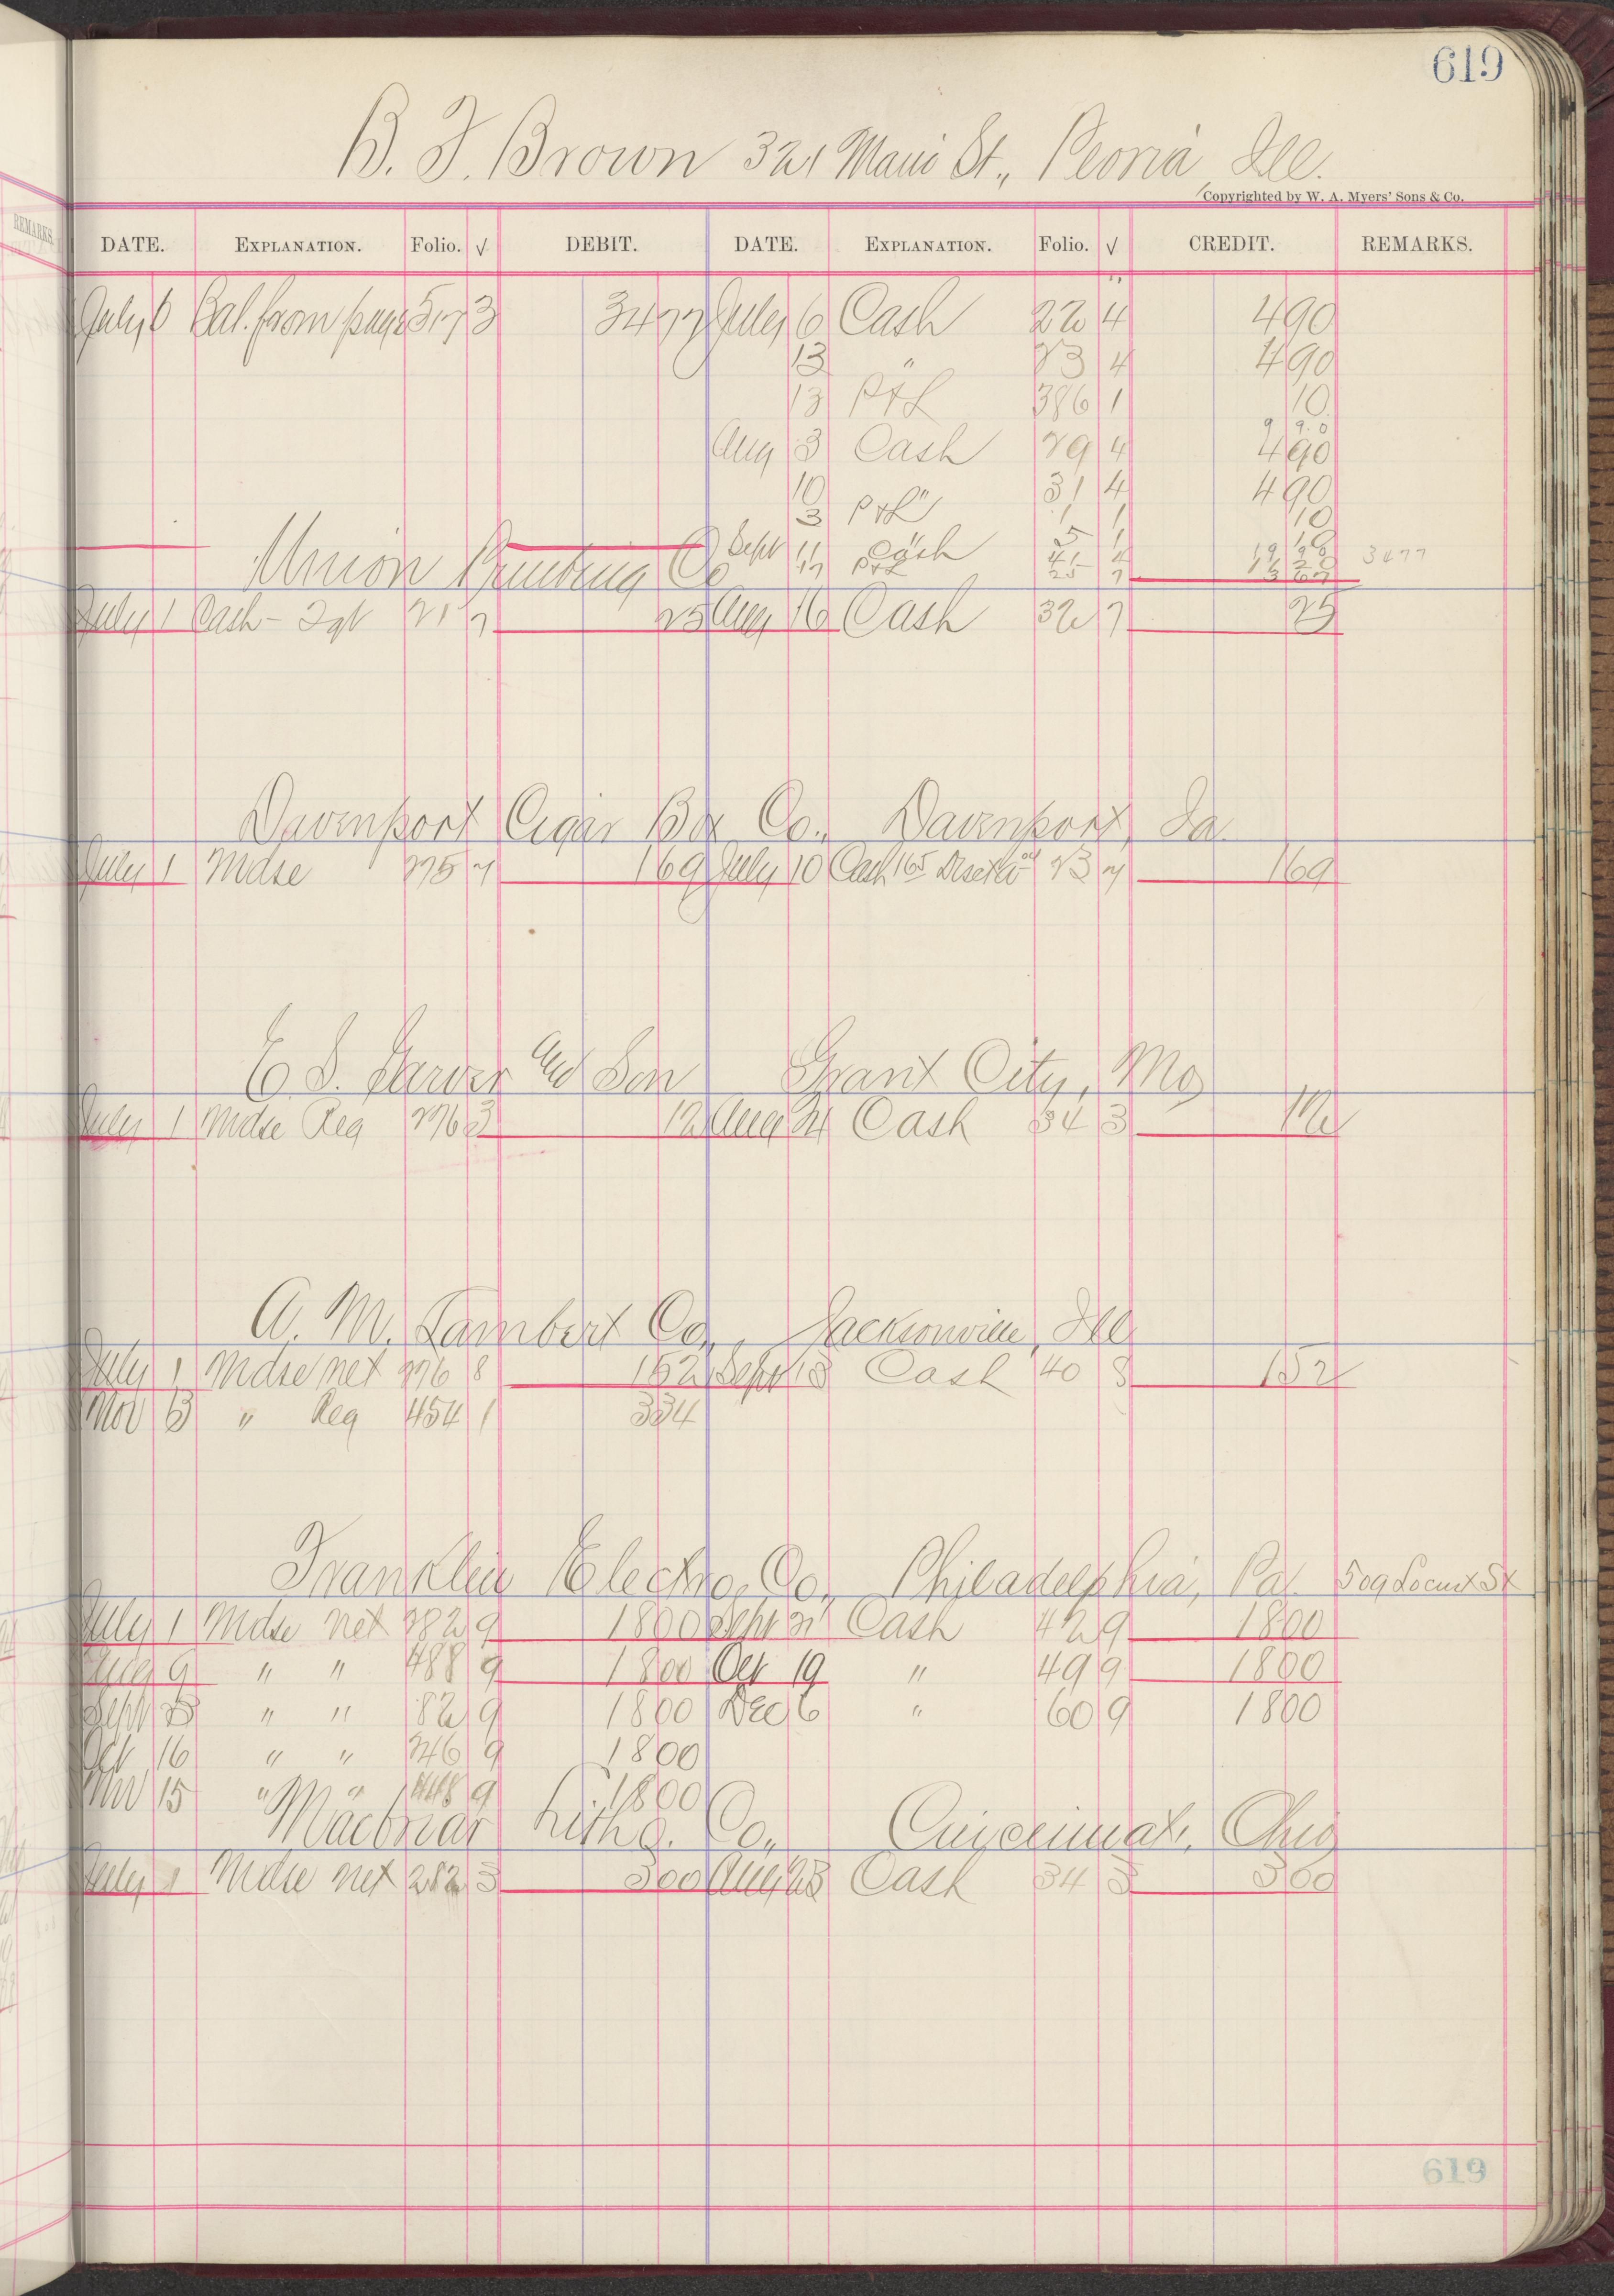 619
B. F. Brown 321 Main St., Peoria, Ill.
Copyrighted by W. A. Myers' Sons & Co.
DATE. EXPLANATION. Folio. √ DEBIT. DATE. EXPLANATION. Folio. √ CREDIT. REMARKS.
July 6 Bal. from page 517 3 3477 July 6 Cash 22 4 490
13 " 23 4 490
13 P&L 386 1 10
Aug 3 Cash 29 4 490
10 " 31 4 490
3 P&L 1 1 10
Sept 11 Cash
17 P&L 3477
Union Printing Co
July 1 Cash 21 7 25 Aug 16 Cash 32 7 25
Davenport Cigar Box Co., Davenport, Ia.
July 1 Mdse 275 7 169 July 10 Cash 165 Disct 23 7 169
E. S. Garver and Son Grant City, Mo
July 1 Mdse Reg 276 3 12 Aug 24 Cash 34 3 12
A. M. Lambert Co., Jacksonville, Ill
July 1 Mdse net 276 8 152 Sept 13 Cash 40 8 152
Nov 13 " Reg 454 1 334
Franklin Electro. Co., Philadelphia, Pa. 509 Locust St
July 1 Mdse net 282 9 1800 Sept 21 Cash 42 9 1800
Aug 9 " " 488 9 1800 Oct 19 " 49 9 1800
Sept " " 82 9 1800 Dec 6 " 60 9 1800
Oct 16 " " 246 9 1800
Nov 15 " " 448 9 1800
Macbriar Litho. Co., Cincinnati, Ohio
July 1 Mdse net 282 3 300 Aug 23 Cash 34 3 300
619